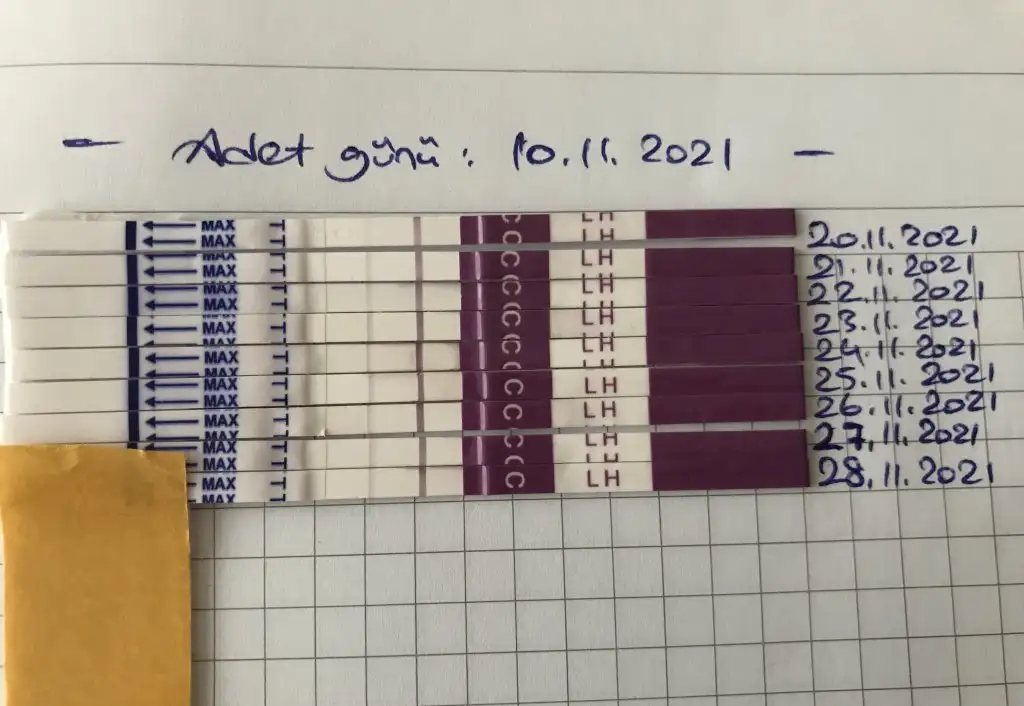 - Adet günü : 10.11.2021 -
MAX T C LH
MAX T C LH 20.11.2021
MAX T C LH 21.11.2021
MAX T C LH 22.11.2021
MAX T C LH 23.11.2021
MAX T C LH 24.11.2021
MAX T C LH 25.11.2021
MAX T C LH 26.11.2021
MAX T C LH 27.11.2021
MAX T C LH 28.11.2021
MAX